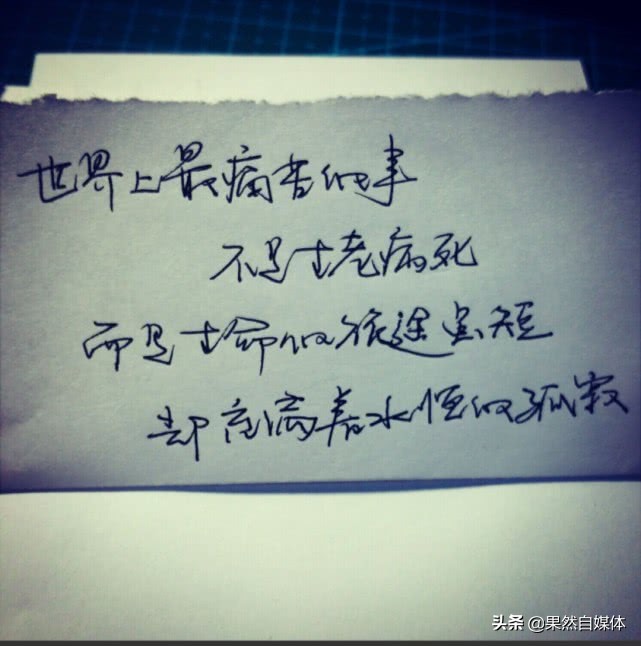 世界上最痛苦的事
不是生老病死
而是生命的旅途虽短
却充满着永恒的孤寂
头条 @果然自媒体